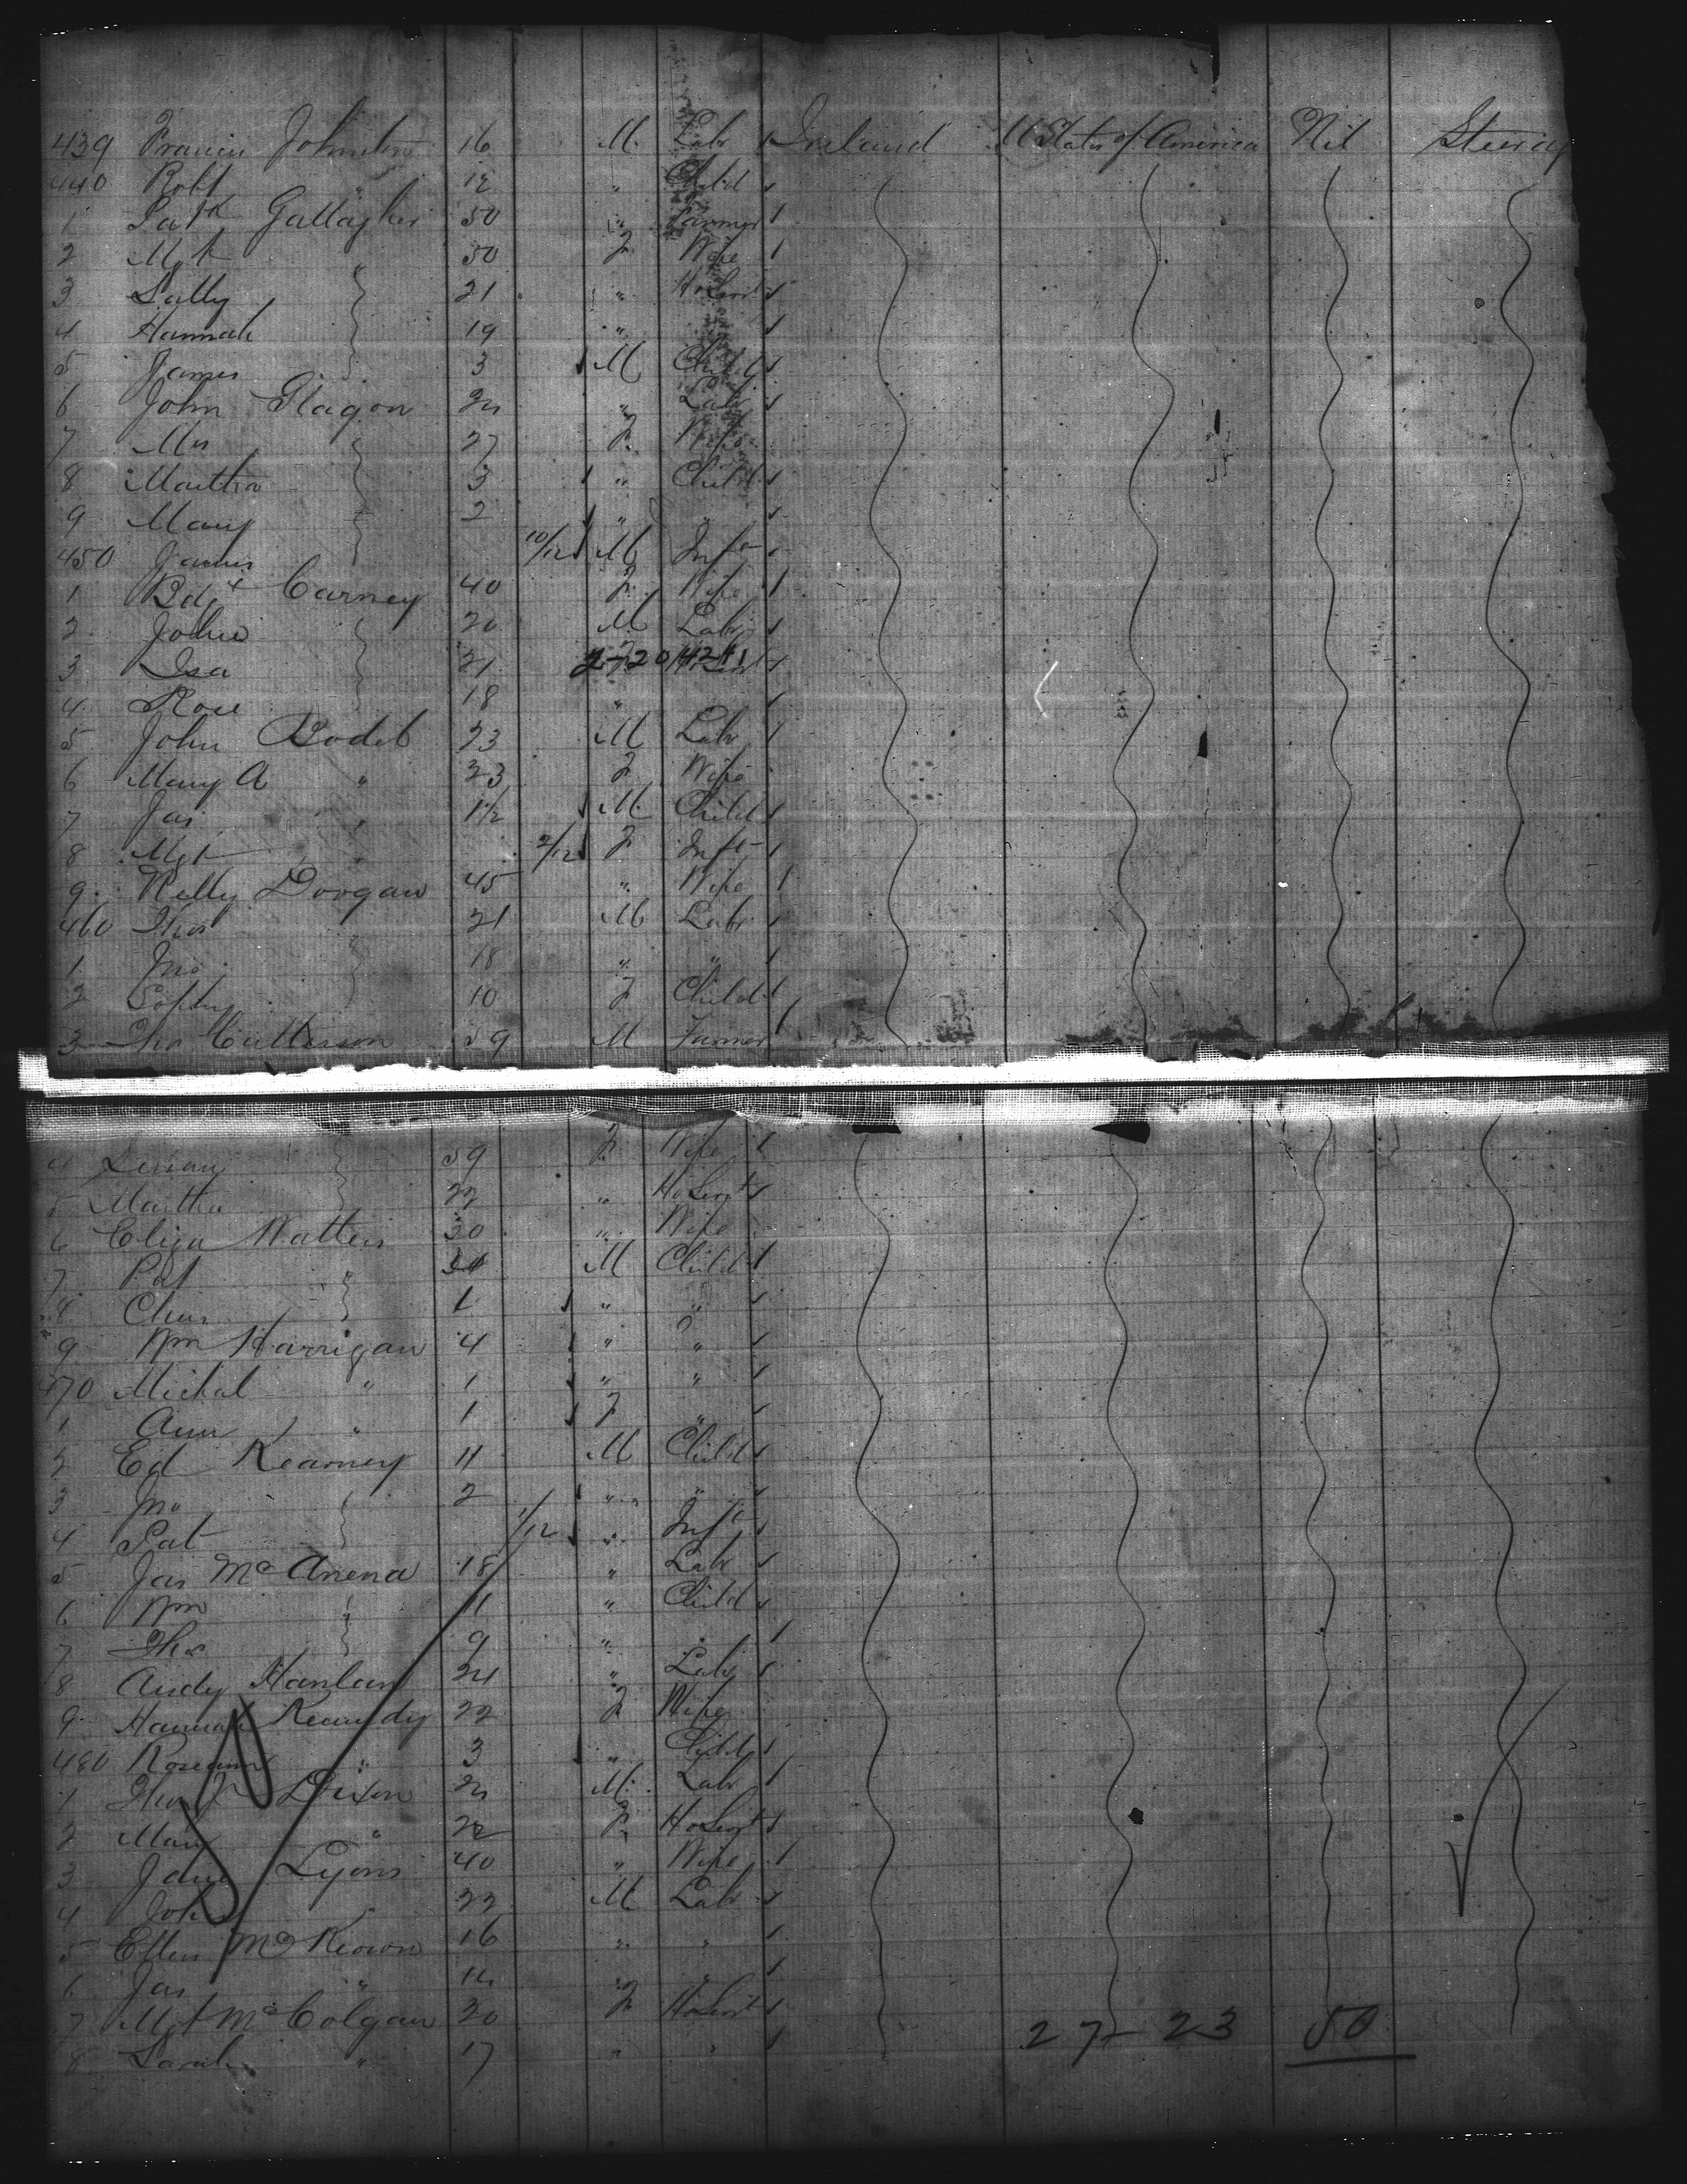 439 Francis Johnston 16 M. Labr Ireland U States of America Nil
440 Robt " 12 " Child
1 Patk Gallagher 50 " Farmer
2 Mgt 50 F Wife
3 Sally " 21 " Ho Servt
4 Hannah 19 " "
5 James 3 M Child
6 John Glagon 24 " Labr
7 Mrs 27 F. Wife
8 Martha 3 " Child
9 Mary 2 " "
450 James 10/12 M Inft
1 Bdgt Carney 40 F. Wife
2 John 20 M Labr
3 Isa 21 Ho Servt
4 Rose 18 "
5 John 23 M Labr
6 Mary A " 23 F Wife
7 Jas " 1 1/2 M. Child
8 Mgt " 2/12 F Inft
9 Kelly Doogan 45 " Wife
460 Thos 21 M Labr
1 Jno " 18 " "
2 10 F Child
3 Thos Cutterson 59 M Farmer
4 59 F. Wife
5 Martha 22 " Ho Servt
6 Eliza Watters 30 " Wife
7 Pat " M Child
8 Chas 1 " "
9 Wm Harrigan 4 " "
470 Michal " 1 " "
1 Ann " 1 F "
2 Ed Kearney 11 M Child
3 Jno 2 " "
4 Pat 1/12 " Inft
5 Jas Mc Anena 18 " Labr
6 Wm " 11 " Child
7 Thos 9 " "
8 Andy Hanlan 24 " Labr
9 Hannah Kennedy 22 F Wife
480 Roseann " 3 " Child
1 Thos Dixon 24 M. Labr
2 Mary " 22 F. Ho Servt
3 Jane Lyons 40 " Wife
4 John " 22 M Labr
5 Ellen Mc Keown 16 " "
6 Jas " 14 "
7 Mgt Mc Colgan 20 F Ho Servt
8 Sarah " 17 " "
27-23 50